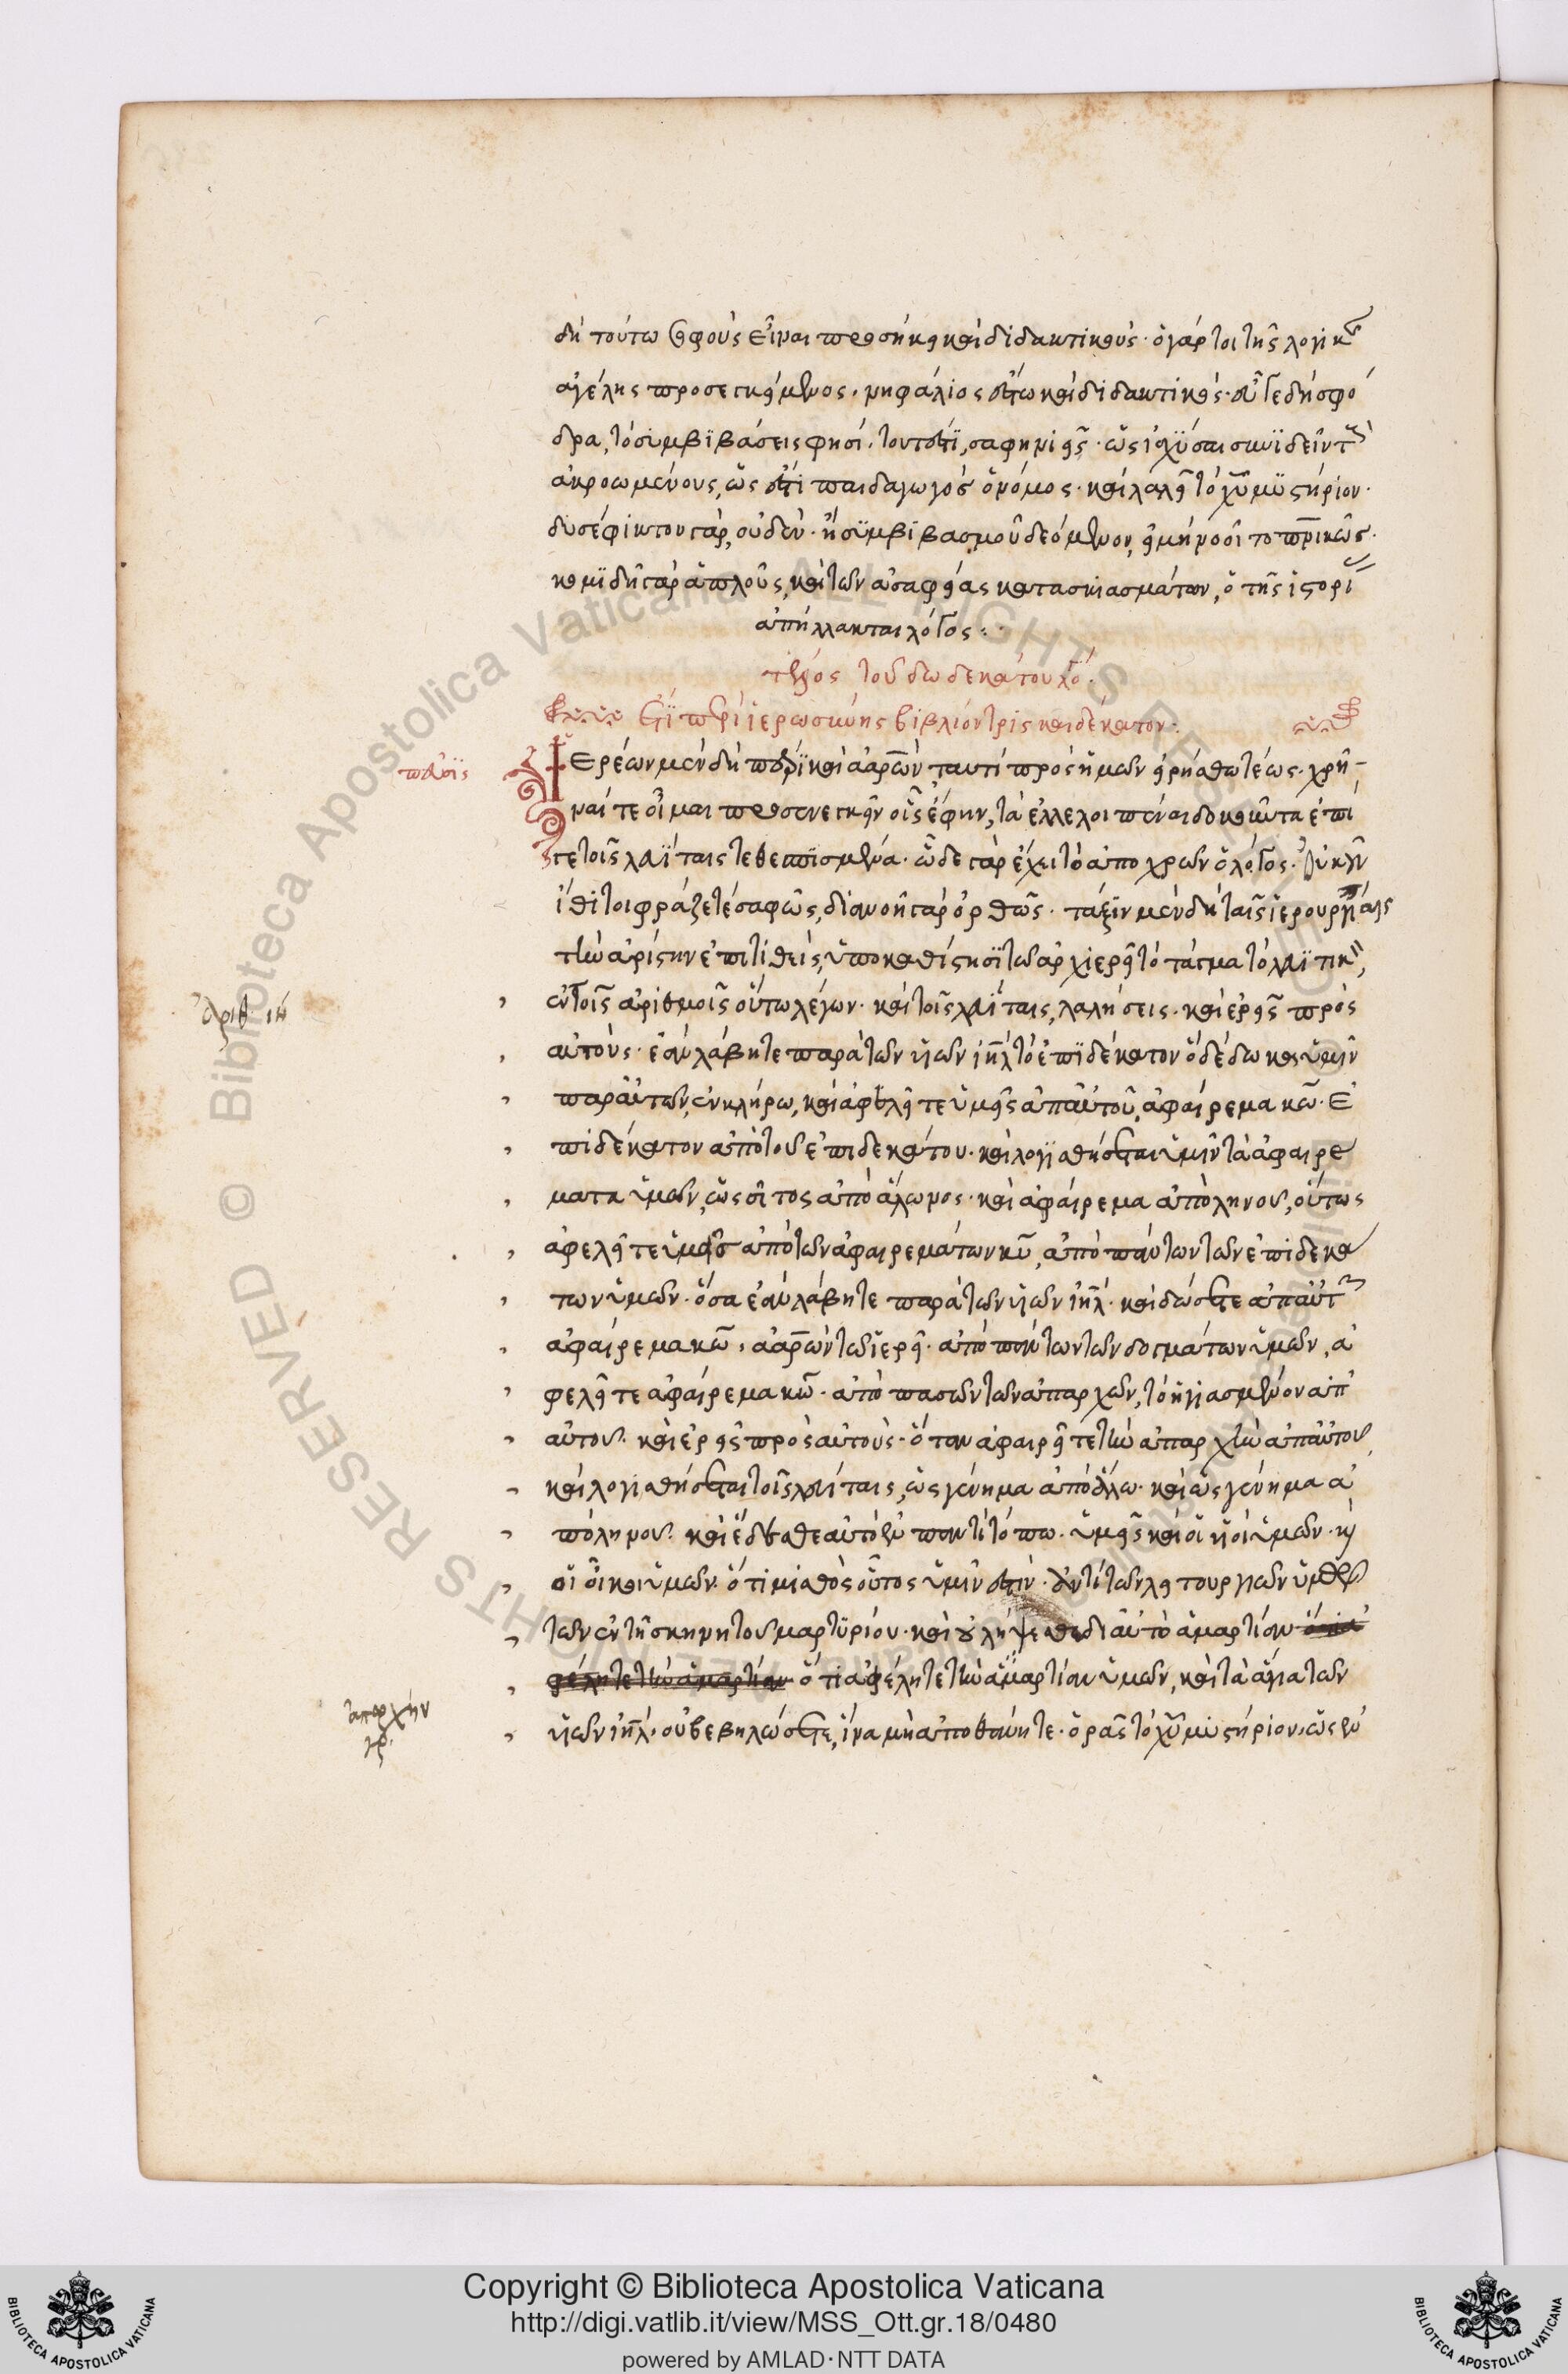 δὴ τούτω σοφοὺς εἶναι προσήκει καὶ διδακτικούς· ὁ γάρ τοι τῆς λογικῆς
ἀγέλης προεστηκώς
νηφάλιος ἔστω καὶ διδακτικός· εὖ γε δὴ σφό
δρα, τὸ συμβιβάσεις φησί· τουτέστι, σαφηνιεῖς· ὡς ἰσχύσαι συνϊδεῖν τοὺς
ἀκροωμένους, ὡς ἔστι παιδαγωγὸς ὁ νόμος· καὶ λαλεῖ τὸ χυ μυστήριον·
δυσέφικτον γὰρ, οὐδέν· ἢ συμβιβασμοῦ δεόμενον, εἰ μὴ νοοῖτο πνικῶς·
κομιδῆ γὰρ ἁπλοῦς, καὶ τῶν ἀσαφείας κατασκιασμάτων, ὁ τῆς ἱστορίας
ἀπήλλακται λόγος:·
τέλος τοῦ δωδεκάτου λό·
ἔτι περὶ ἱερωσύνης βιβλίον τρισκαιδέκατον·
Ἱερέων μὲν δὴ πέρι καὶ ἀαρὼν ταυτὶ πρὸς ἡμῶν εἰρήσθω τέως· χρῆ-
ναί τε οἶμαι προσενεγκεῖν οἷς ἔφην, τὰ ἐλλελοιπέναι δοκοῦντα ἐπί
τε τοῖς λευΐταις τεθεσπισμένα· ὧδε γὰρ ἔχει τὸ ἀποχρῶν ὁ λόγος· οὐκοῦν
ἴθι τοι φράζε τε σαφῶς, διανοῇ γὰρ ὀρθῶς· τάξιν μὲν δὴ ταῖς ἱερουργίαις
τὴν ἀρίστην ἐπιτιθεὶς, ὑποκαθίστησι τῶ ἀρχιερεῖ τὸ τάγμα τὸ λευϊτικὸν,
ἀριθ ιή
ἐν τοῖς ἀριθμοῖς οὕτω λέγων· καὶ τοῖς λευΐταις, λαλήσεις· καὶ ἐρεῖς πρὸς
αὐτούς· ἐὰν λάβητε παρὰ τῶν υἱῶν ιηλ τὸ ἐπιδέκατον ὃ δέδωκα ὑμῖν
παρ' αὐτῶν, ἐν κλήρω, καὶ ἀφελεῖτε ὑμεῖς ἀπ' αὐτοῦ, ἀφαίρεμα κω· ἐ
πιδέκατον ἀπὸ τοῦ ἐπιδεκάτου· καὶ λογισθήσεται ὑμῖν τὰ ἀφαιρέ
ματα ὑμῶν, ὡς σῖτος ἀπὸ ἅλωνος· καὶ ἀφαίρεμα ἀπὸ ληνοῦ, οὕτως
ἀφελεῖτε ὑμεῖς ἀπὸ τῶν ἀφαιρεμάτων κυ, ἀπὸ πάντων τῶν ἐπιδεκά
των ὑμῶν· ὅσα ἐὰν λάβητε παρὰ τῶν υἱῶν ιηλ· καὶ δώσετε ἀπ' αὐτῶν
ἀφαίρεμα κω, ἀαρὼν τῶ ἱερεῖ· ἀπὸ πάντων τῶν δογμάτων ὑμῶν, ἀ
φελεῖτε ἀφαίρεμα κω· ἀπὸ πασῶν τῶν ἀπαρχῶν, τὸ ἡγιασμένον ἀπ'
αὐτοῦ· καὶ ἐρεῖς πρὸς αὐτούς· ὅταν ἀφαιρεῖτε τὴν ἀπαρχὴν ἀπ' αὐτοῦ,
καὶ λογισθήσεται τοῖς λευΐταις, ὡς γένημα ἀπὸ ἅλω· καὶ ὡς γένημα ἀ
πὸ ληνοῦ· καὶ ἔδεσθε αὐτὸ ἐν παντὶ τόπω· ὑμεῖς καὶ οἱ υἱοὶ ὑμῶν· καὶ
οἱ οἶκοι ὑμῶν· ὅτι μισθὸς οὗτος ὑμῖν ἐστίν· ἀντὶ τῶν λειτουργιῶν ὑμῶν
τῶν ἐν τῆ σκηνῆ τοῦ μαρτυρίου· καὶ οὐ λήψεσθε δι' αὐτὸ ἁμαρτίαν ὅτι ἀ
φέλητε τὴν ἁμαρτίαν ὅτι ἀφέλητε τὴν ἁμαρτίαν ὑμῶν, καὶ τὰ ἅγια τῶν
ἀπαρχὴν
γρ.
υἱῶν ιηλ· οὐ βεβηλώσετε, ἵνα μὴ ἀποθάνητε· ὁρᾶς τὸ χυ μυστήριον, ὡς ἐν
Biblioteca Apostolica Vaticana
ALL RIGHTS RESERVED ©
Copyright © Biblioteca Apostolica Vaticana
http://digi.vatlib.it/view/MSS_Ott.gr.18/0480
powered by AMLAD·NTT DATA
BIBLIOTECA APOSTOLICA VATICANA
BIBLIOTECA APOSTOLICA VATICANA